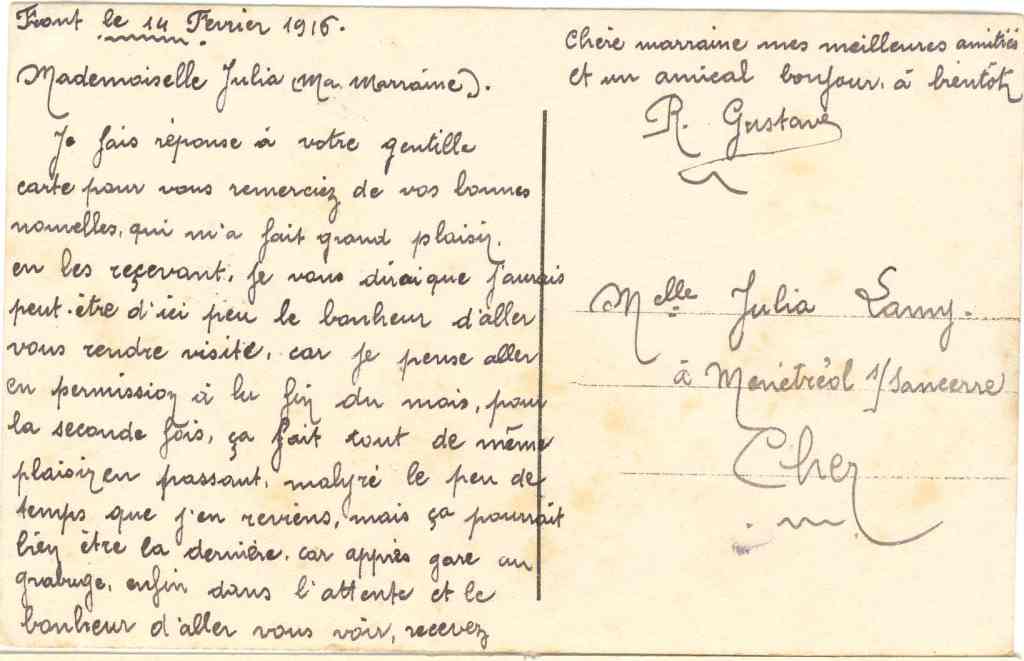 Front le 14 Fevrier 1916.
Mademoiselle Julia (Ma Marraine).
Je fais réponse à votre gentille
carte pour vous remerciez de vos bonnes
nouvelles, qui m'a fait grand plaisir,
en les reçevant, je vous dirai que j'aurais
peut-être d'ici peu le bonheur d'aller
vous rendre visite, car je pense aller
en permission à la fin du mois, pour
la seconde fois, ça fait tout de même
plaisir en passant, malgré le peu de
temps que j'en reviens, mais ça pourrait
bien être la dernière, car apprès gare au
grabuge, enfin dans l'attente et le
bonheur d'aller vous voir, recevez
Chère marraine mes meilleures amitiés
et un amical bonjour, à bientôt
R. Gustave
Melle Julia Lamy.
à Menétréol s/Sancerre
Cher